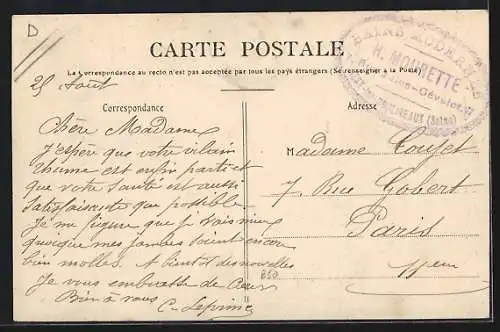 D
BAINS MODERNES
H. MOURETTE
MOULINEAUX (Seine)
CARTE POSTALE
La Correspondance au recto n'est pas acceptée par tous les pays étrangers (Se renseigner à la Poste)
25 Aout
Correspondance
Adresse
Chère Madame
J'espère que votre vilain
rhume est enfin parti et
que votre santé est aussi
satisfaisante que possible.
Je me figure que je vais mieux
quoique mes jambes soient encore
bien molles. A bientôt des nouvelles
Je vous embrasse de cœur
Bien à vous
C. Leprince
Madame
7, Rue Gobert
Paris
11em